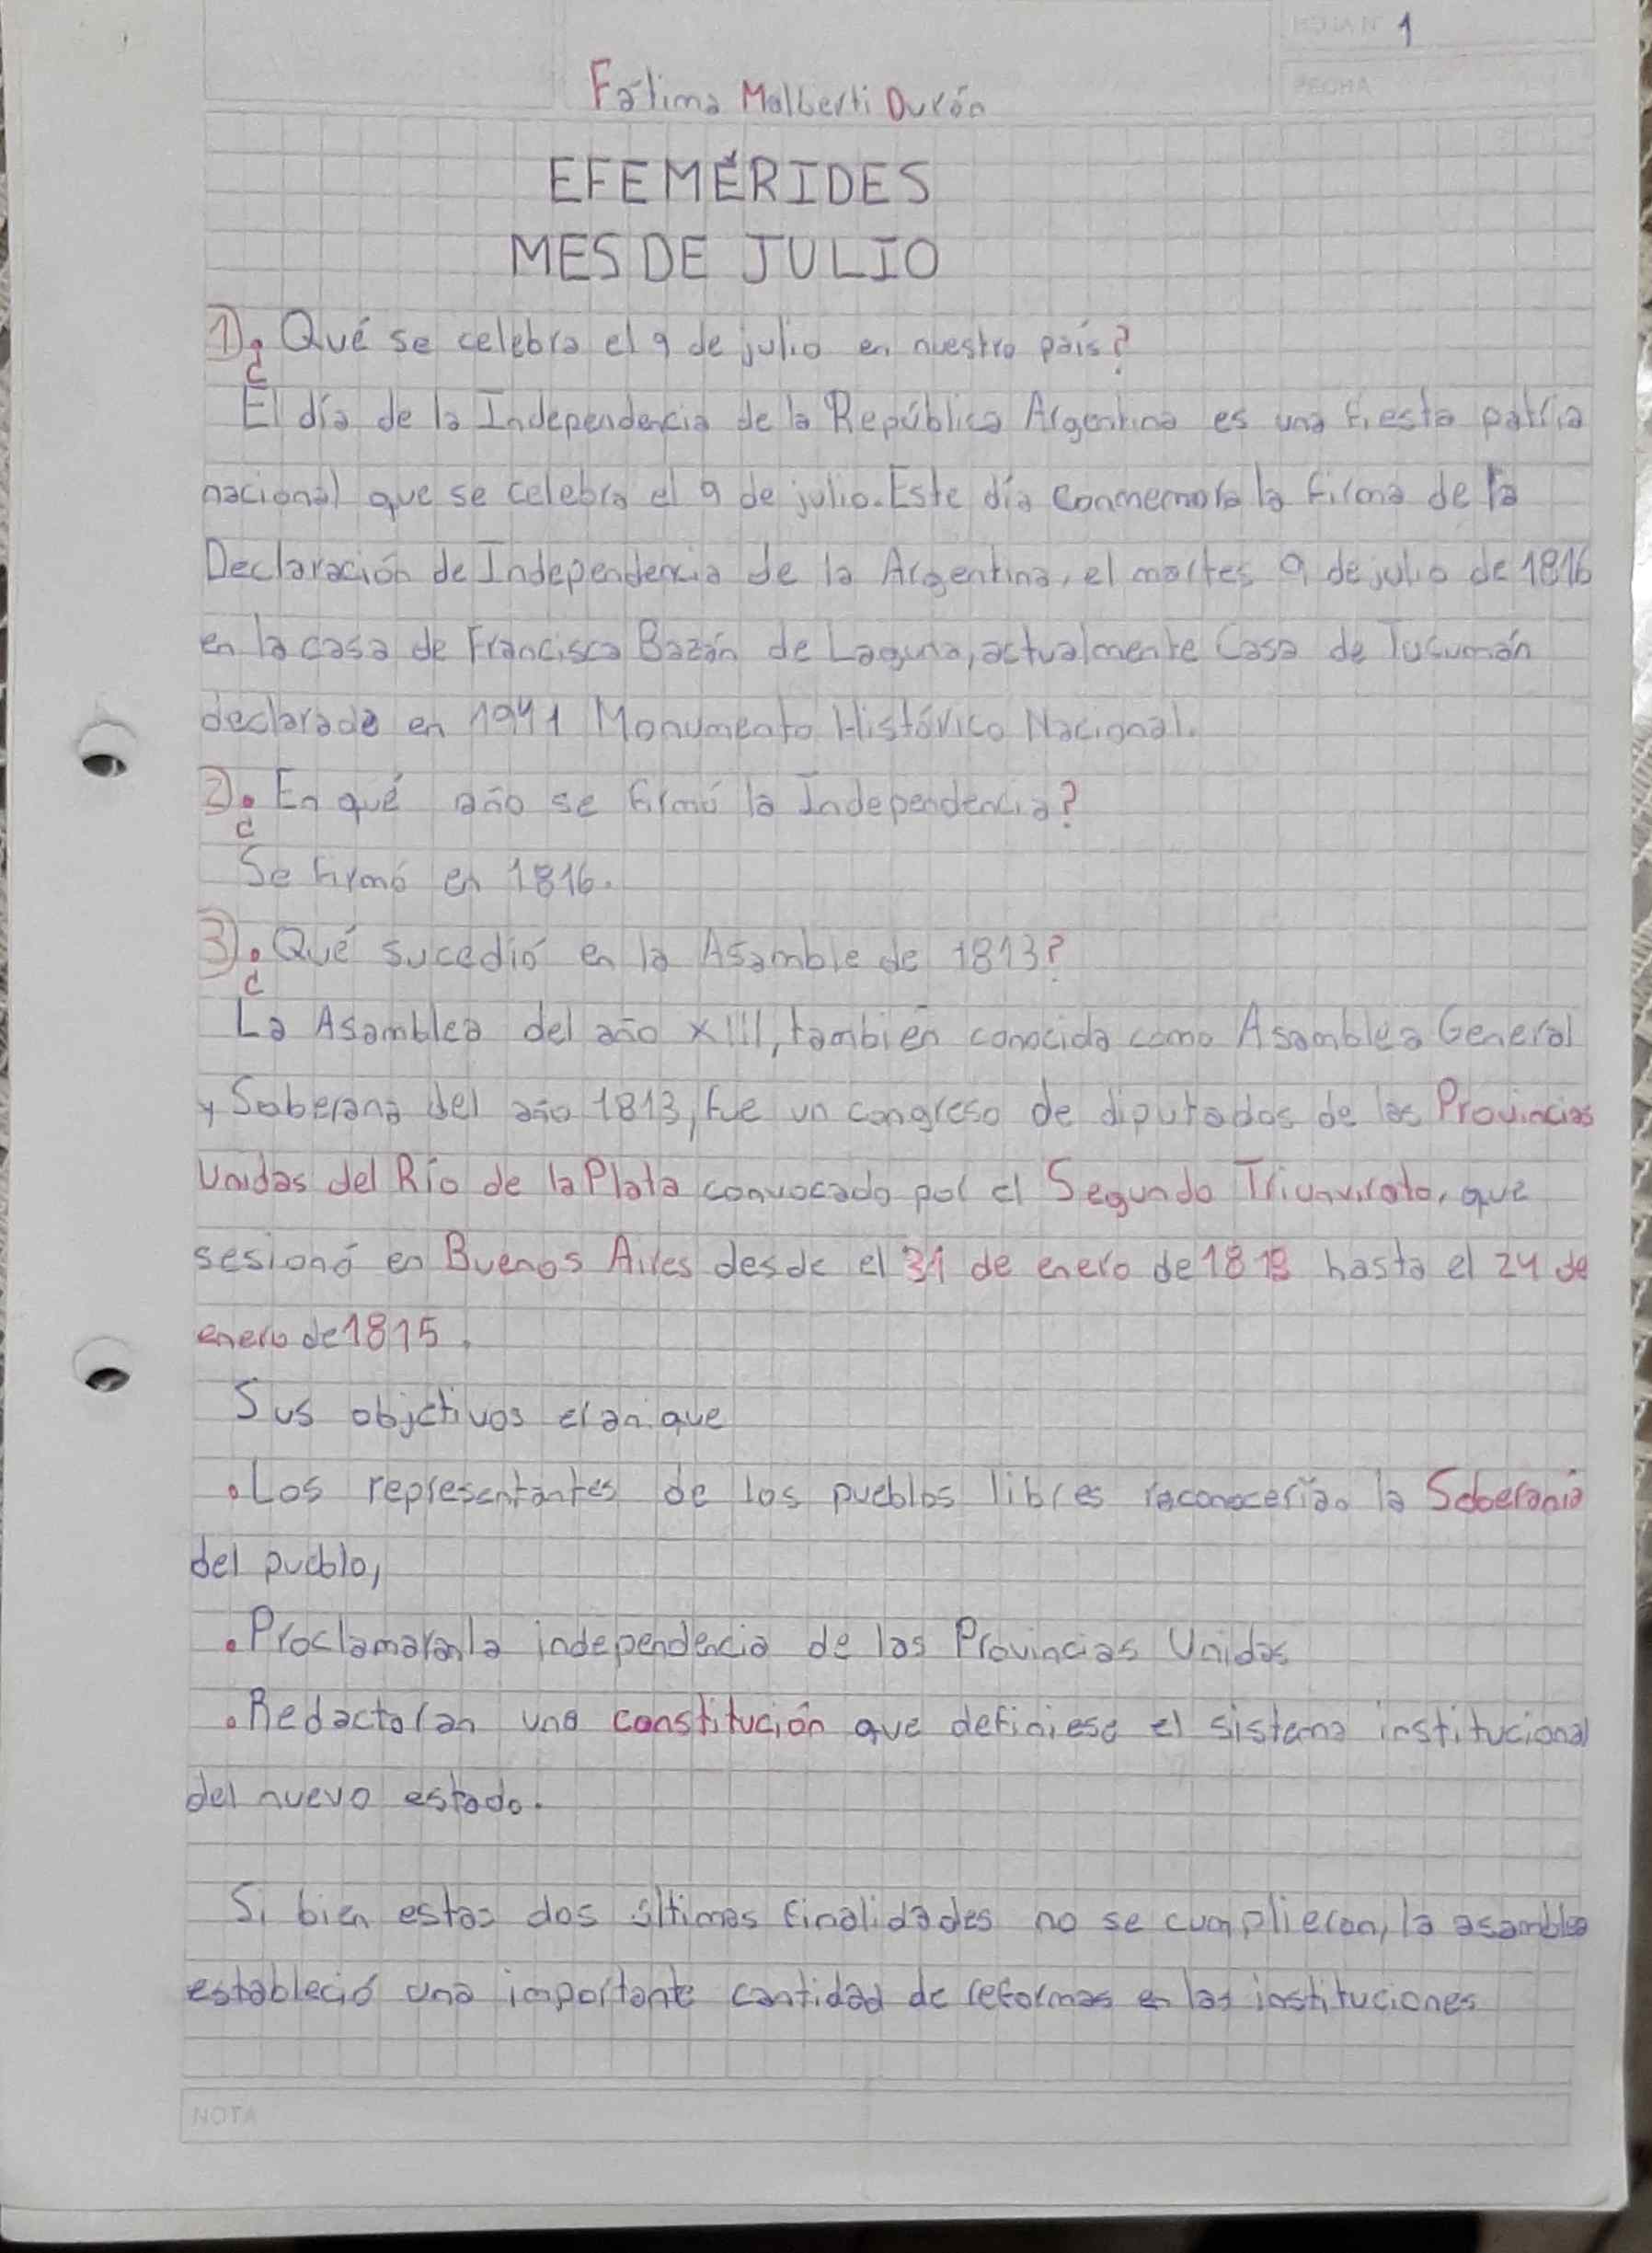 HOJA N° 1
FECHA
Fátima Malberti Durán
EFEMÉRIDES
MES DE JULIO
1) ¿Qué se celebra el 9 de julio en nuestro país?
El día de la Independencia de la República Argentina es una fiesta patria
nacional que se celebra el 9 de julio. Este día conmemora la firma de la
Declaración de Independencia de la Argentina, el martes 9 de julio de 1816
en la casa de Francisca Bazán de Laguna, actualmente Casa de Tucumán
declarada en 1941 Monumento Histórico Nacional.
2) ¿En qué año se firmó la Independencia?
Se firmó en 1816.
3) ¿Qué sucedió en la Asamble de 1813?
La Asamblea del año XIII, también conocida como Asamblea General
y Soberana del año 1813, fue un congreso de diputados de las Provincias
Unidas del Río de la Plata convocado por el Segundo Triunvirato, que
sesionó en Buenos Aires desde el 31 de enero de 1813 hasta el 24 de
enero de 1815.
Sus objetivos eran que
• Los representantes de los pueblos libres reconocerían la Soberanía
del pueblo,
• Proclamaran la independencia de las Provincias Unidas
• Redactaran una constitución que definiese el sistema institucional
del nuevo estado.
Si bien estas dos últimas finalidades no se cumplieron, la asamblea
estableció una importante cantidad de reformas en las instituciones
NOTA